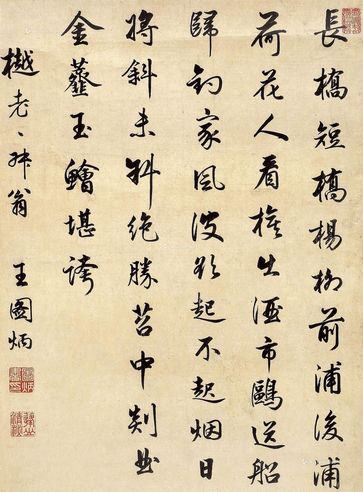 長橋短橋楊柳前浦後浦
荷花人看旗出酒市鷗送船
歸釣家風波欲起不起烟日
將斜未斜絶勝苕中剡曲
金虀玉鱠堪誇
樾老〻年翁 王圖炳